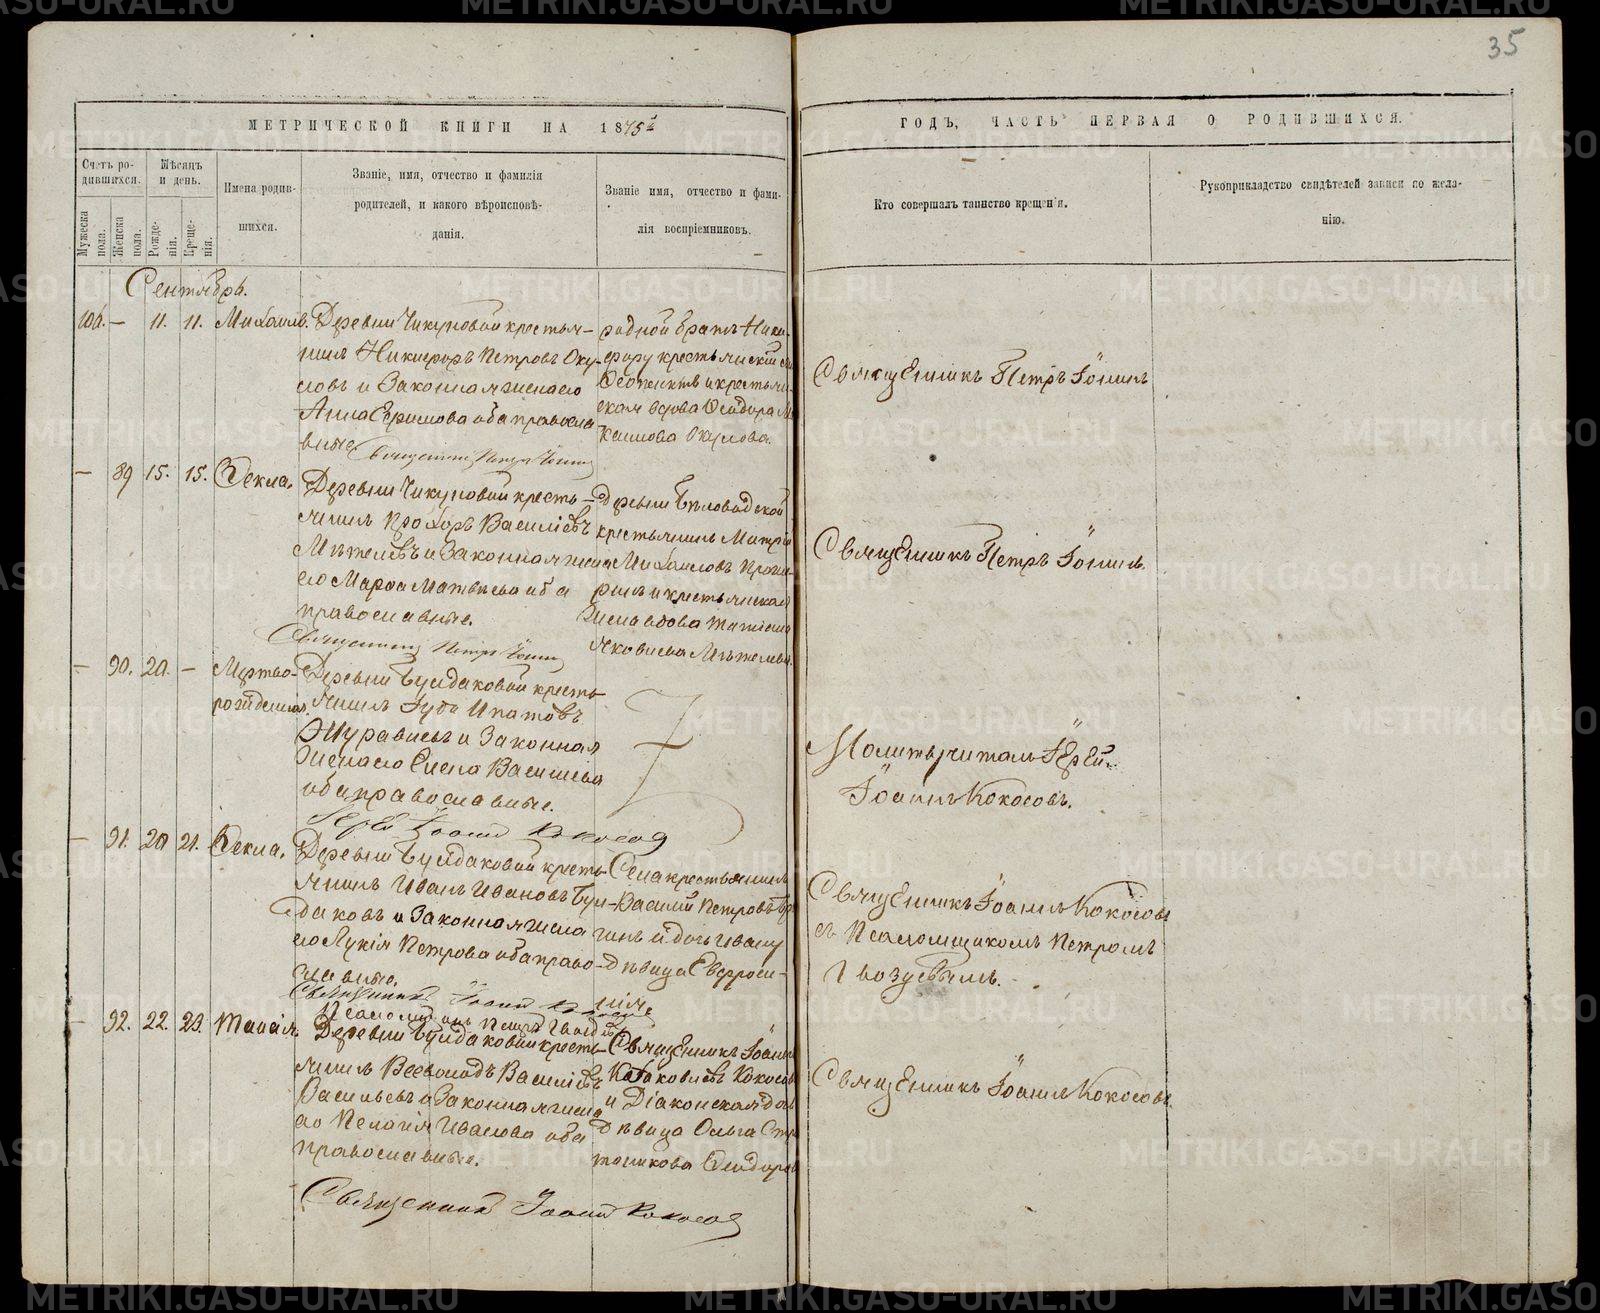 35
МЕТРИЧЕСКОЙ КНИГИ НА 1875й
ГОДЪ, ЧАСТЬ ПЕРВАЯ О РОДИВШИХСЯ.
Счетъ ро-
дившихся.
Мѣсяцъ
и день.
Мужеска
пола.
Женска
пола.
Рожде-
нія.
Креще-
нія.
Имена родив-
шихся.
Званіе, имя, отчество и фамилія
родителей, и какого вѣроисповѣ-
данія.
Званіе имя, отчество и фами-
лія воспріемниковъ.
Кто совершалъ таинство крещенія.
Рукоприкладство свидѣтелей записи по жела-
нію.
Сентябрь.
— 11. 11. Михаилъ.
Деревни Чикуновой крестья-
нинъ Никифоръ Петровъ Оку-
ловъ и законная жена его
Анна Ефимова оба правосла-
вные
Священникъ Петръ
родной братъ Ники-
фору крестьянскій
и крестьян-
ская вдова
Окулова.
Священникъ Петръ
— 89 15. 15. Ѳекла.
Деревни Чикуновой кресть-
янинъ Прохоръ Василіевъ
и законная жена
его Марѳа Матвѣева оба
православные.
Священникъ Петръ
деревни
крестьянинъ
Михаиловъ
и крестьянская
вдова Татіана
Яковлева
Священникъ Петръ
— 90. 20. — Мертво-
рожденная.
Деревни Булдаковой кресть-
янинъ Іуда Ипатовъ
Журавлевъ и законная
жена его Елена Василіева
оба православные.
Іерей Іоаннъ Кокосовъ
Молитву читалъ Іерей
Іоаннъ Кокосовъ.
— 91. 20 21. Ѳекла.
Деревни Булдаковой кресть-
янинъ Иванъ Ивановъ Бул-
даковъ и законная жена
его Лукія Петрова оба право-
славные.
Священникъ Іоаннъ Кокосовъ
Псаломщикъ Петръ
Села крестьянинъ
Василій Петровъ
и дочь Ивану
дѣвица Евфроси-
нія.
Священникъ Іоаннъ Кокосовъ
съ Псаломщикомъ Петромъ
Гвоздевымъ.
— 92. 22. 23. Таисія.
Деревни Булдаковой кресть-
янинъ Всеволодъ Василіевъ
Васильевъ и законная жена
его Пелагія Иванова оба
православные.
Священникъ Іоаннъ Кокосовъ
Священникъ Іоаннъ
Кокосовъ
и Діаконская дочь
дѣвица Ольга
Священникъ Іоаннъ Кокосовъ.
METRIKI.GASO-URAL.RU